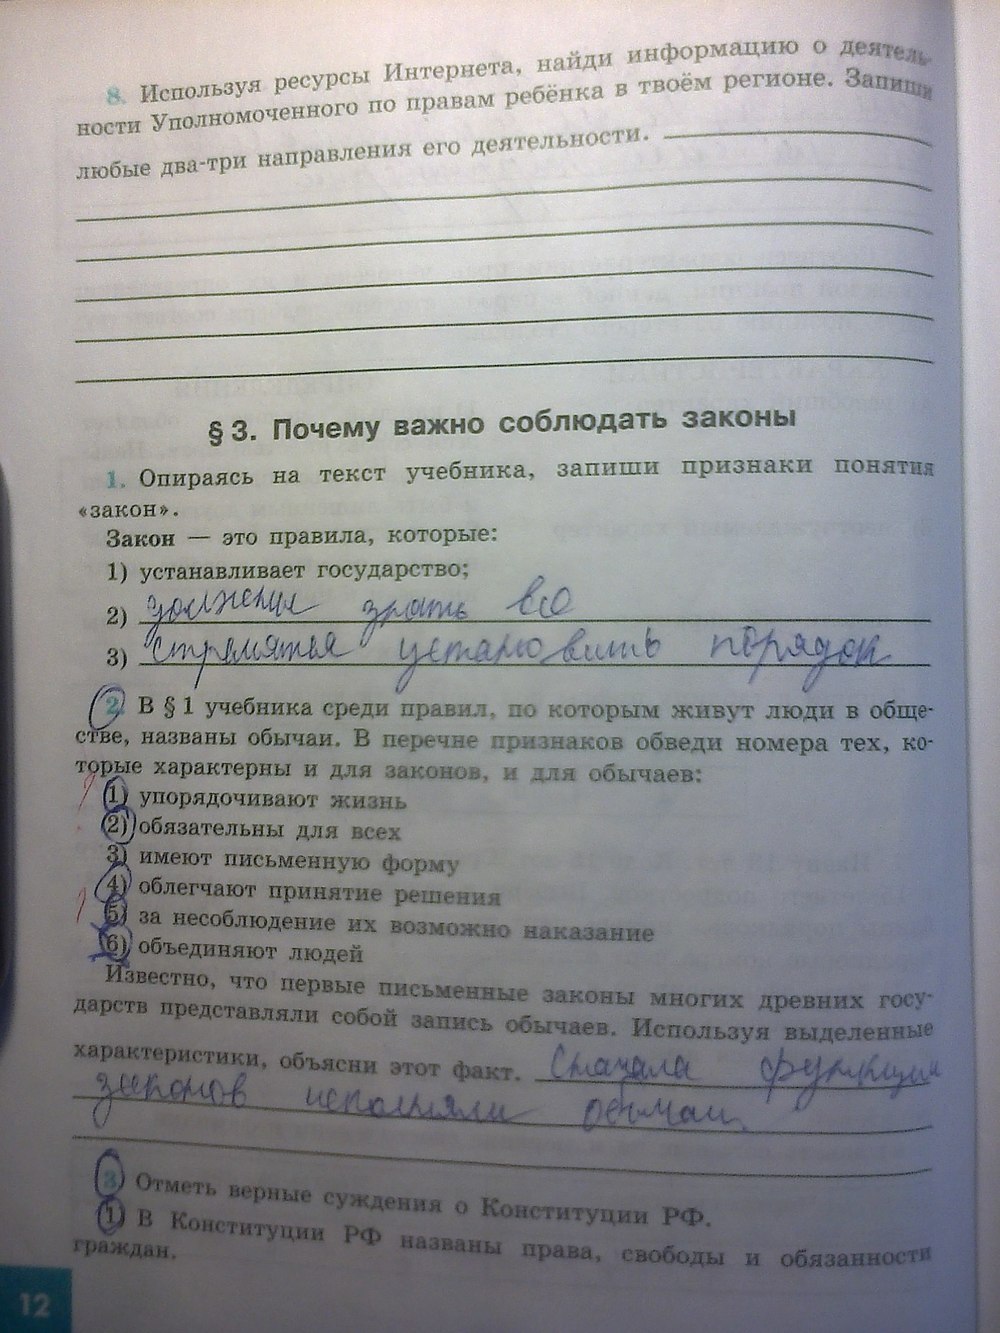 8. Используя ресурсы Интернета, найди информацию о деятель-
ности Уполномоченного по правам ребёнка в твоём регионе. Запиши
любые два-три направления его деятельности.
§ 3. Почему важно соблюдать законы
1. Опираясь на текст учебника, запиши признаки понятия
«закон».
Закон — это правила, которые:
1) устанавливает государство;
2) должны знать все
3) стремятся установить порядок
2. В § 1 учебника среди правил, по которым живут люди в обще-
стве, названы обычаи. В перечне признаков обведи номера тех, ко-
торые характерны и для законов, и для обычаев:
1) упорядочивают жизнь
2) обязательны для всех
3) имеют письменную форму
4) облегчают принятие решения
5) за несоблюдение их возможно наказание
6) объединяют людей
Известно, что первые письменные законы многих древних госу-
дарств представляли собой запись обычаев. Используя выделенные
характеристики, объясни этот факт. Сначала функции
законов исполняли обычаи.
3. Отметь верные суждения о Конституции РФ.
1) В Конституции РФ названы права, свободы и обязанности
граждан.
12